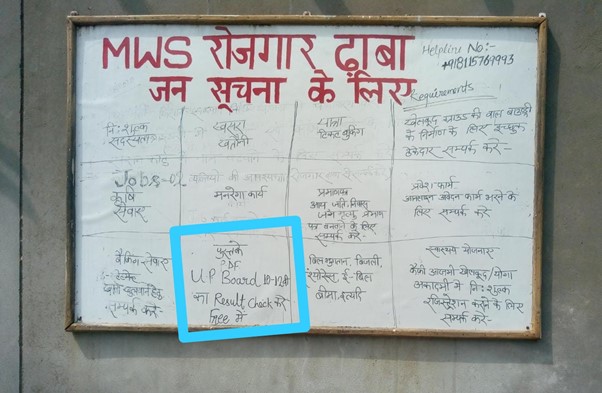 MWS रोजगार ढ़ाबा
जन सूचना के लिए
Helpline No:-
+918115769993
Requirements
नि:शुल्क
सदस्यता
खसरा
खतौनी
यात्रा
टिकट बुकिंग
खेलकूद ग्राउंड की बाल बाउंड्री
के निर्माण के लिए इच्छुक
ठेकेदार सम्पर्क करे-
Jobs
कृषि
सेवाए
मनरेगा कार्य
प्रमाणपत्र
आय जाति निवास
जन्म मृत्यु प्रमाण
पत्र बनवाने के लिए
सम्पर्क करे-
प्रवेश फार्म
आनलाइन आवेदन फार्म भरने के
लिए सम्पर्क करे-
बैंकिंग सेक्टर
सम्पर्क करे-
पुस्तके
PDF
U.P Board 10-12th
का Result Check करे
Free में
बिल भुगतान, बिजली,
ई-बिल
बीमा, इत्यादि
स्वास्थ्य योजनाए
कैमी आदमी खेलकूद/योगा
अकादमी में नि:शुल्क
रजिस्ट्रेशन कराने के लिए
सम्पर्क करे-